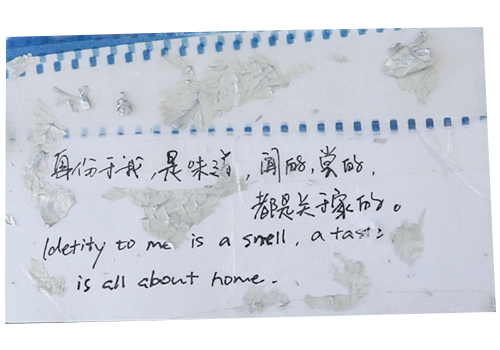 身份于我，是味道，闻的，尝的，
都是关于家的。
Idetity to me is a smell, a taste
is all about home.